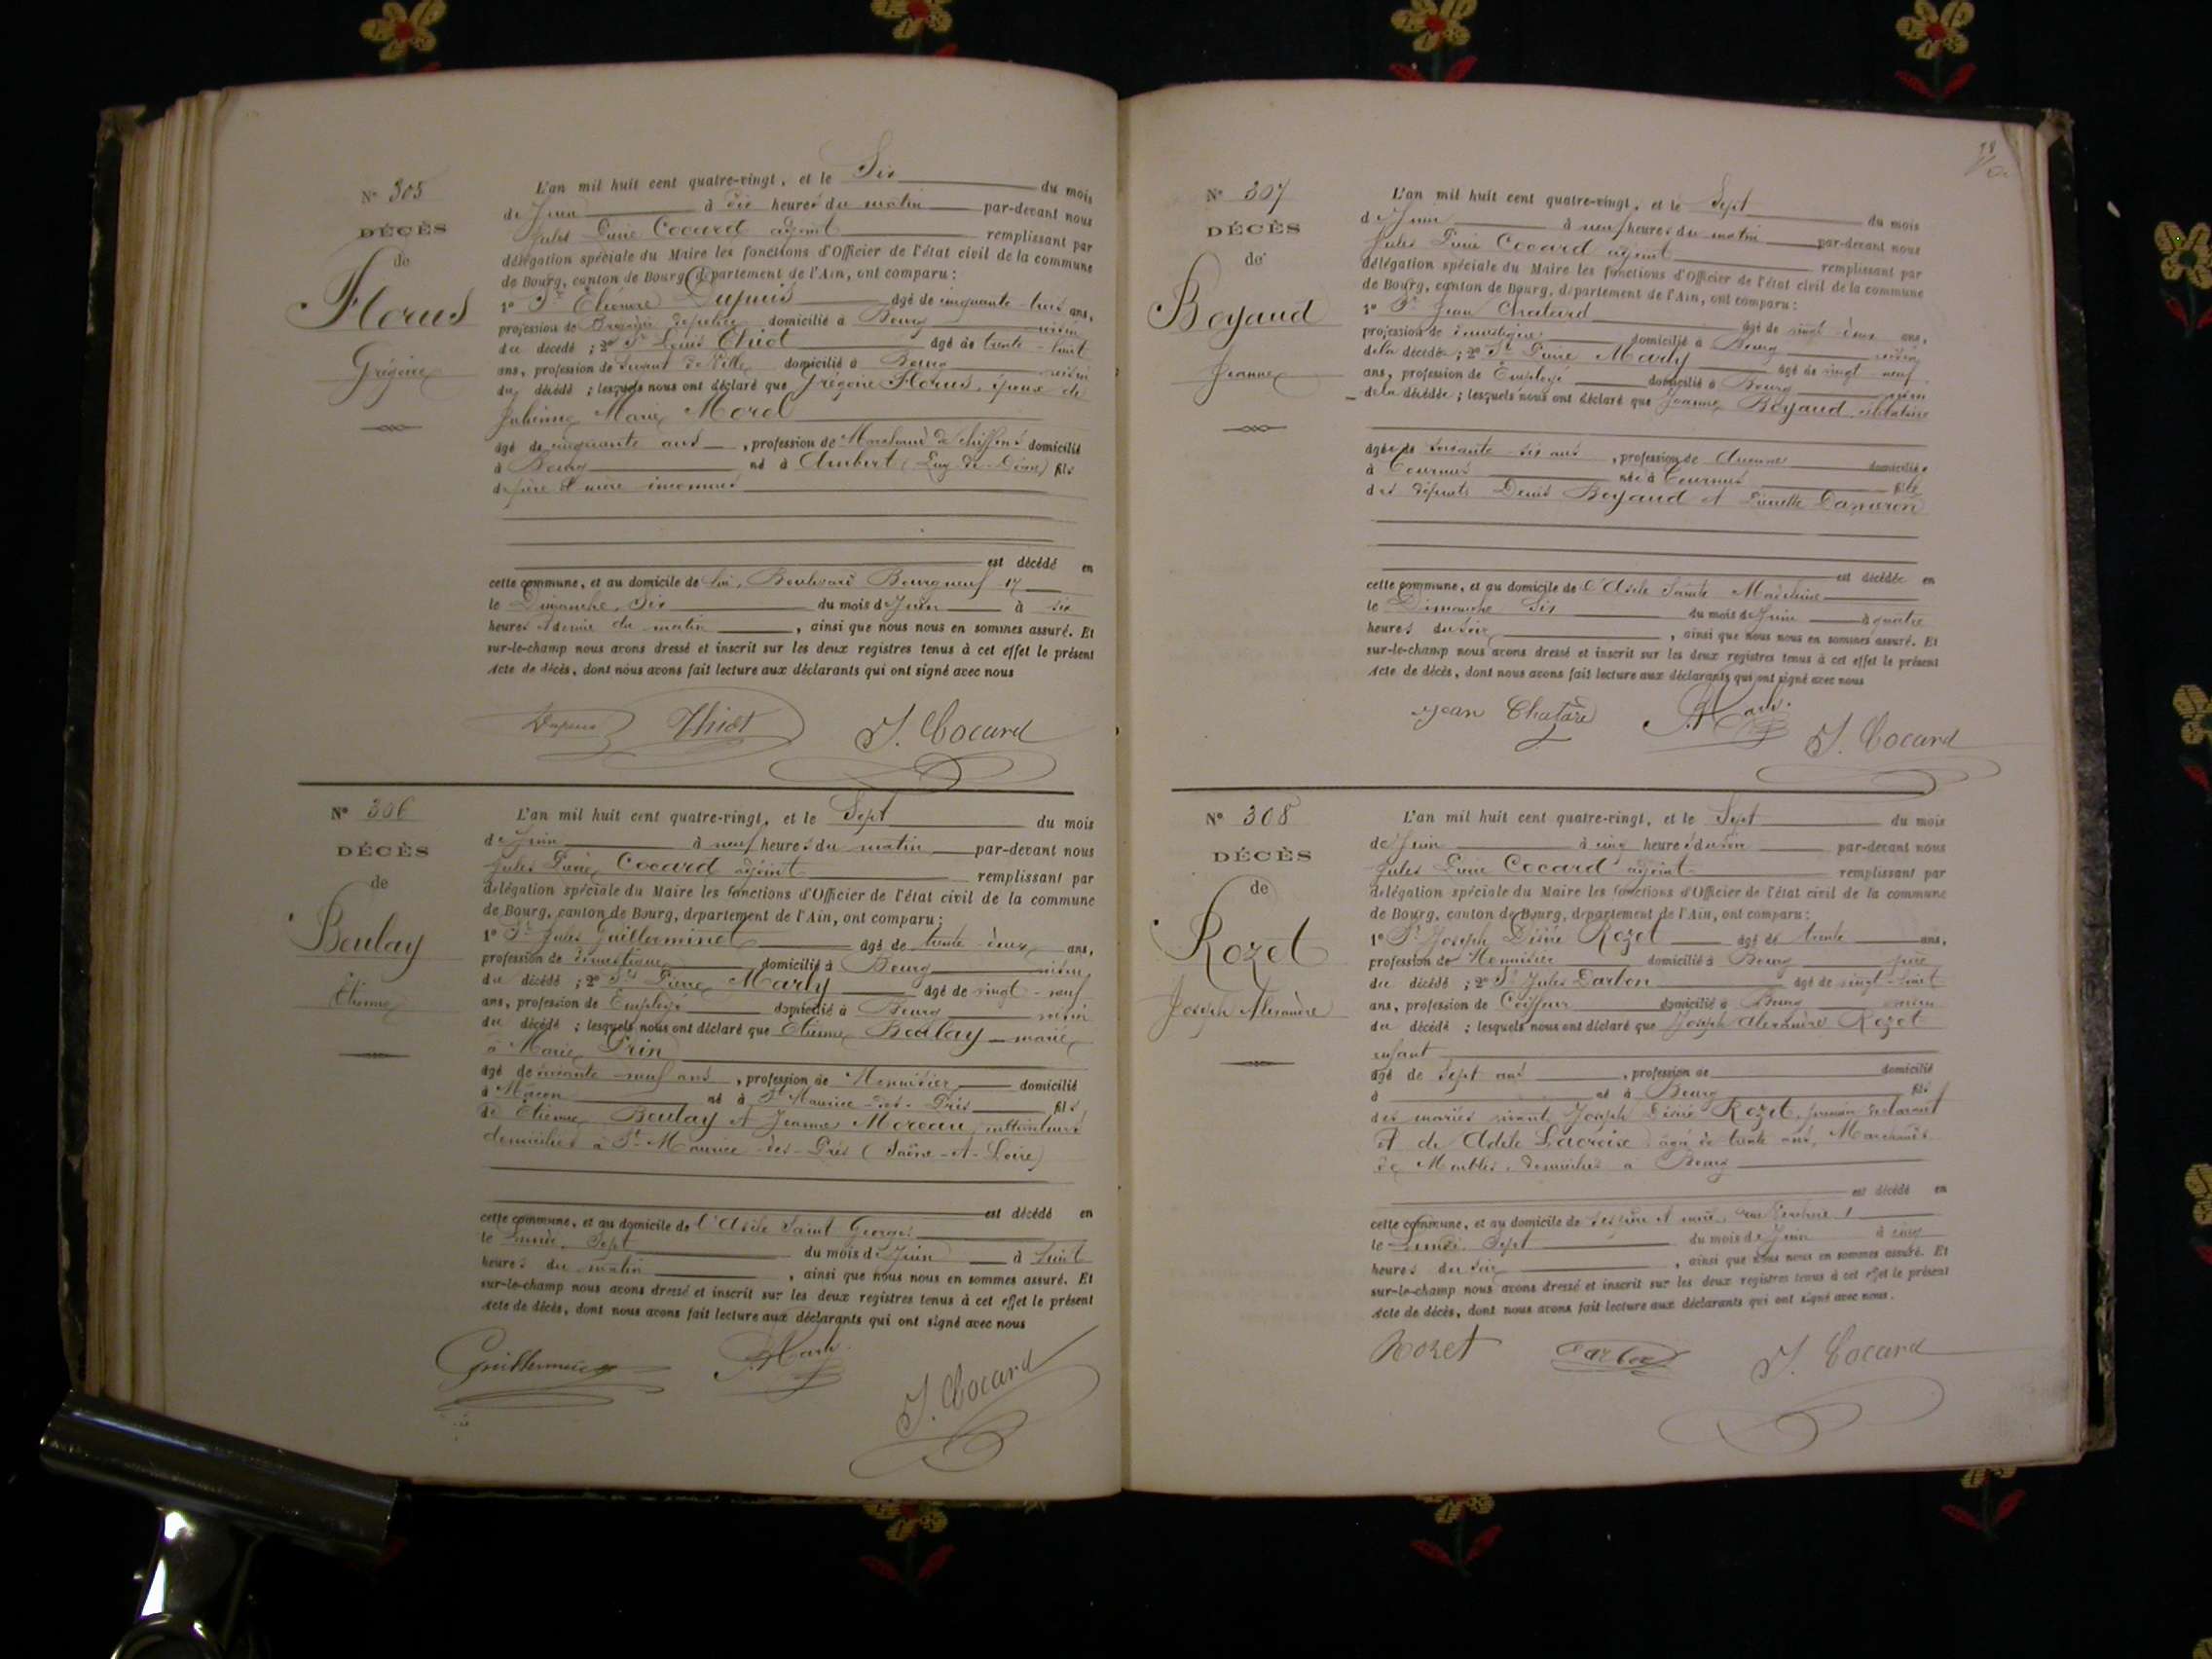 N° 305
DÉCÈS
de
Florus
Grégoire
L'an mil huit cent quatre-vingt, et le Six du mois
de Juin à dix heures du matin par-devant nous
Jules Pierre Cocard adjoint remplissant par
délégation spéciale du Maire les fonctions d'Officier de l'état civil de la commune
de Bourg, canton de Bourg, département de l'Ain, ont comparu :
1° Sr Eléonore Dupuis âgé de cinquante-trois ans,
profession de de police domicilié à Bourg voisin
du décédé ; 2° Sr Louis Thiot âgé de trente-huit
ans, profession de Sergent de Ville domicilié à Bourg voisin
du décédé ; lesquels nous ont déclaré que Grégoire Florus, époux de
Marie Morel
âgé de cinquante ans, profession de Marchand de chiffons domicilié
à Bourg né à Ambert (Puy-de-Dôme) fils
de père et mère inconnus
est décédé en
cette commune, et au domicile de lui, Boulevard Bourgneuf 17
le Dimanche, Six du mois de Juin à six
heures et demie du matin, ainsi que nous nous en sommes assuré. Et
sur-le-champ nous avons dressé et inscrit sur les deux registres tenus à cet effet le présent
Acte de décès, dont nous avons fait lecture aux déclarants qui ont signé avec nous
Dupuis Thiot J. Cocard
N° 306
DÉCÈS
de
Boulay
Etienne
L'an mil huit cent quatre-vingt, et le Sept du mois
de Juin à neuf heures du matin par-devant nous
Jules Pierre Cocard adjoint remplissant par
délégation spéciale du Maire les fonctions d'Officier de l'état civil de la commune
de Bourg, canton de Bourg, département de l'Ain, ont comparu :
1° Sr Jules Guillerminet âgé de trente-deux ans,
profession de domestique domicilié à Bourg voisin
du décédé ; 2° Sr Pierre Marly âgé de vingt-neuf
ans, profession de Employé domicilié à Bourg voisin
du décédé ; lesquels nous ont déclaré que Etienne Boulay marié
à Marie Prin
âgé de neuf ans, profession de Menuisier domicilié
à Mâcon né à St Maurice-des-Prés fils
de Etienne Boulay et Jeanne Moreau, cultivateurs
domiciliés à St-Maurice-des-Prés (Saône-et-Loire)
est décédé en
cette commune, et au domicile de l'Asile Saint Georges
le Lundi, Sept du mois de Juin à huit
heures du matin, ainsi que nous nous en sommes assuré. Et
sur-le-champ nous avons dressé et inscrit sur les deux registres tenus à cet effet le présent
Acte de décès, dont nous avons fait lecture aux déclarants qui ont signé avec nous
Guillerminet J. Cocard
N° 307
DÉCÈS
de
Boyaud
Jeanne
L'an mil huit cent quatre-vingt, et le Sept du mois
de Juin à neuf heures du matin par-devant nous
Jules Pierre Cocard adjoint remplissant par
délégation spéciale du Maire les fonctions d'Officier de l'état civil de la commune
de Bourg, canton de Bourg, département de l'Ain, ont comparu :
1° Sr Jean Chatard âgé de vingt-deux ans,
profession de domestique domicilié à Bourg voisin
de la décédée ; 2° Sr Pierre Marly âgé de vingt-neuf
ans, profession de Employé domicilié à Bourg voisin
de la décédée ; lesquels nous ont déclaré que Jeanne Boyaud, célibataire
âgée de soixante-six ans, profession de Aucune domiciliée
à Tournus née à Tournus fille
des défunts Denis Boyaud et Pierrette Dameron
est décédée en
cette commune, et au domicile de l'Asile Sainte Madeleine
le Dimanche Six du mois de Juin à quatre
heures du soir, ainsi que nous nous en sommes assuré. Et
sur-le-champ nous avons dressé et inscrit sur les deux registres tenus à cet effet le présent
Acte de décès, dont nous avons fait lecture aux déclarants qui ont signé avec nous
Jean Chatard J. Cocard
N° 308
DÉCÈS
de
Rozet
Joseph Alexandre
L'an mil huit cent quatre-vingt, et le Sept du mois
de Juin à cinq heures du soir par-devant nous
Jules Pierre Cocard adjoint remplissant par
délégation spéciale du Maire les fonctions d'Officier de l'état civil de la commune
de Bourg, canton de Bourg, département de l'Ain, ont comparu :
1° Sr Joseph Désiré Rozet âgé de trente ans,
profession de Menuisier domicilié à Bourg père
du décédé ; 2° Sr Jules Darbon âgé de vingt-huit
ans, profession de Coiffeur domicilié à Bourg voisin
du décédé ; lesquels nous ont déclaré que Joseph Alexandre Rozet
enfant
âgé de sept ans, profession de domicilié
à né à Bourg fils
des mariés vivants Joseph Désiré Rozet, premier déclarant
et de Adèle Lacroix âgée de trente ans, Marchands
de Meubles, domiciliés à Bourg
est décédé en
cette commune, et au domicile de ses père et mère, rue 1
le Lundi Sept du mois de Juin à cinq
heures du soir, ainsi que nous nous en sommes assuré. Et
sur-le-champ nous avons dressé et inscrit sur les deux registres tenus à cet effet le présent
Acte de décès, dont nous avons fait lecture aux déclarants qui ont signé avec nous.
Rozet Darbon J. Cocard